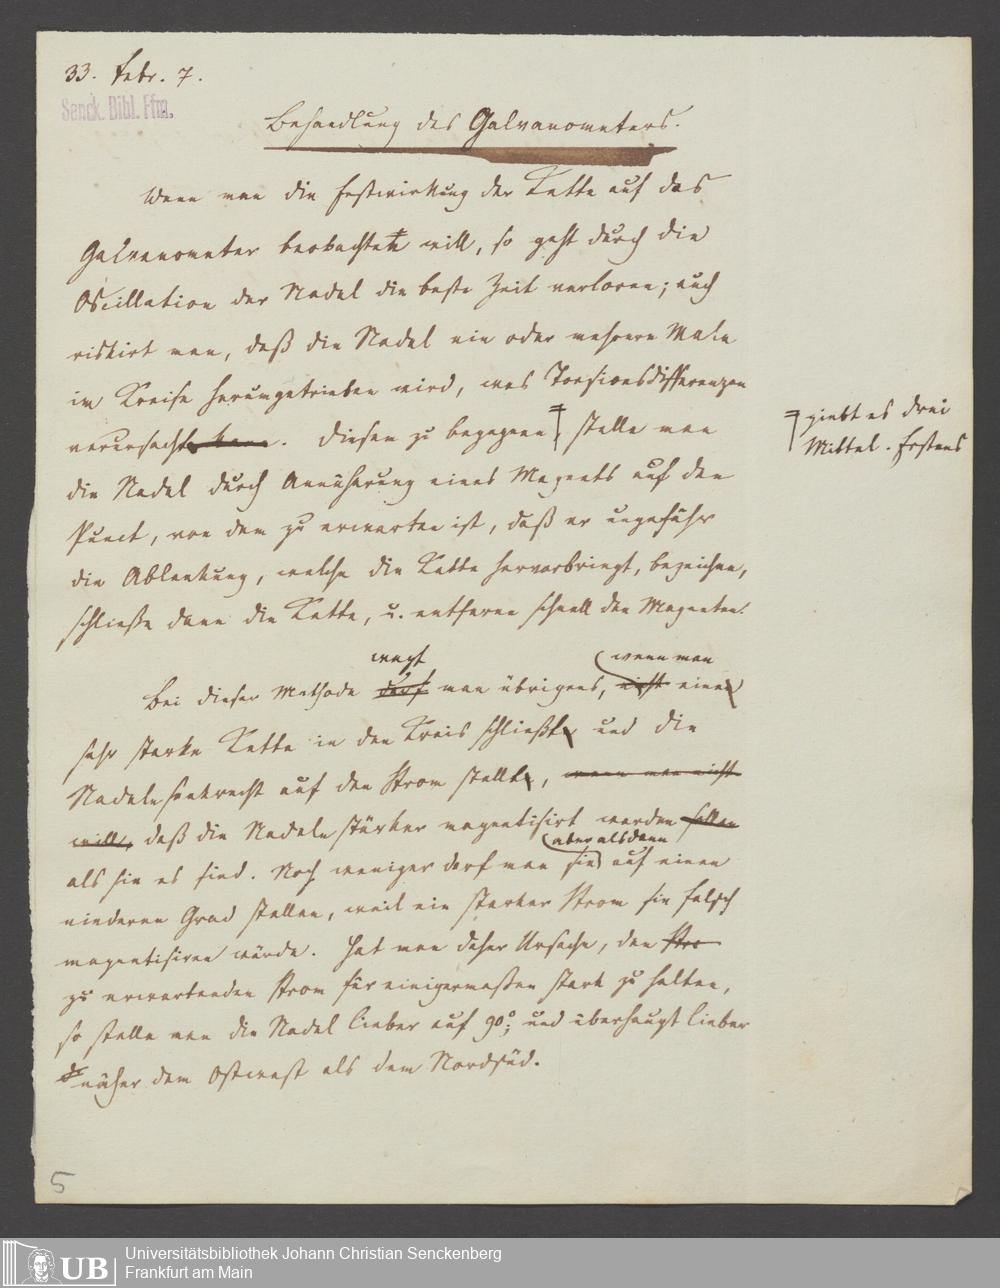 33. Febr. 7.
Senck. Bibl. Ffm.
Behandlung des Galvanometers.
Wenn man die Erstwirkung der Kette auf das
Galvanometer beobachten will, so geht durch die
Oscillation der Nadel die beste Zeit verloren; auch
riskirt man, daß die Nadel ein oder mehrere Male
im Kreise herumgetrieben wird, was Torsionsdifferenzen
verursacht. Diesem zu begegnen stelle man
giebt es drei
Mittel. Erstens
die Nadel durch Annäherung eines Magnets auf den
Punct, von dem zu erwarten ist, daß er ungefähr
die Ablenkung, welche die Kette hervorbringt, bezeichne,
schließe dann die Kette, u. entferne schnell den Magneten.
wagt wenn man
Bei dieser Methode darf man übrigens, nicht eine
sehr starke Kette in den Kreis schließt und die
Nadeln senkrecht auf den Strom stellt, wenn man nicht
will, daß die Nadeln stärker magnetisirt werden sollen
aber alsdann
als sie es sind. Noch weniger darf man sie auf einen
niederen Grad stellen, weil ein starker Strom sie falsch
magnetisiren würde. Hat man daher Ursache, den Stro
zu erwartenden Strom für einigermaßen stark zu halten,
so stelle man die Nadel lieber auf 90°; und überhaupt lieber
näher dem Ostwest als dem Nordsüd.
5
UB
Universitätsbibliothek Johann Christian Senckenberg
Frankfurt am Main